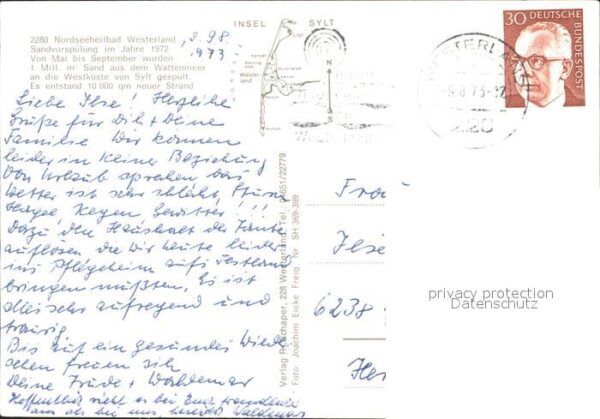 2280 Nordseeheilbad Westerland
Sandvorspülung im Jahre 1972
Von Mai bis September wurden
1 Mill. m³ Sand aus dem Wattenmeer
an die Westküste von Sylt gespült.
Es entstand 10 000 qm neuer Strand
1973
Liebe Ilse! Herzliche
Grüße für Dich + Deine
Familie Wir können
leider in keiner Beziehung
von Urlaub sprechen das
Wetter ist sehr schlecht, Sturm
Hagel, Regen Gewitter!!!
Dazu den Haushalt der Tante
auflösen die wir heute leider
ins Pflegeheim aufs Festland
bringen mußten, Es ist
alles sehr aufregend und
traurig
Bis auf ein gesundes Wieder
sehen freuen sich
Deine Trude + Waldemar
Hoffentlich sieht es bei Euch
aus als bei uns, herzlichst Waldemar
INSEL SYLT
List
Westerland
N
S
WESTERLAND
2280
30 DEUTSCHE
BUNDESPOST
Verlag R. Schaper, 228 Westerland, Tel. 04651/22779
Foto: Joachim Eicke Freig. Nr. SH 369-399
Frau
Ilse
6238
privacy protection
Datenschutz